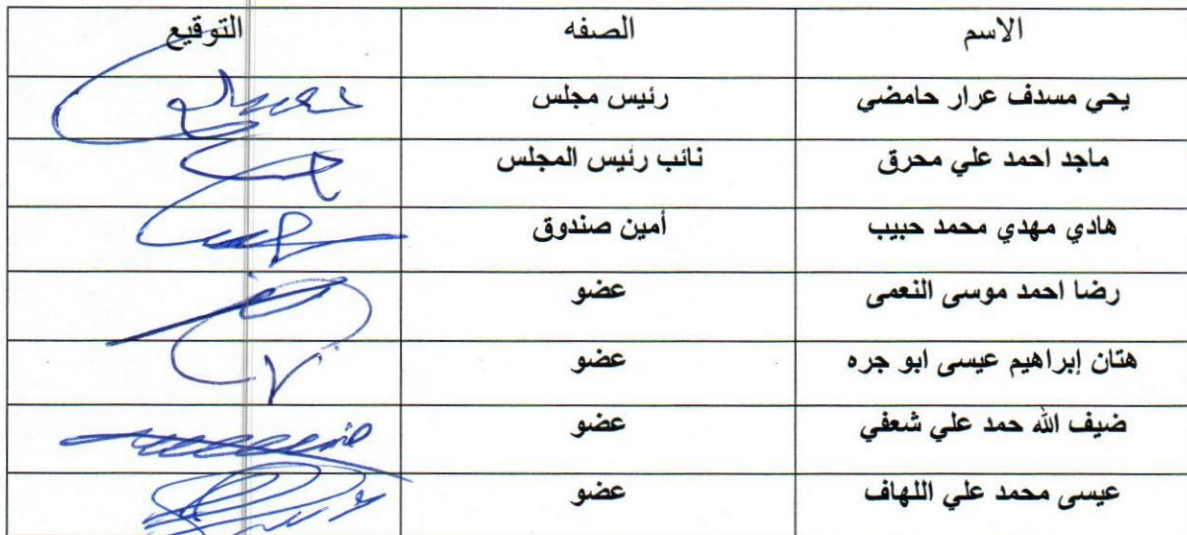 الاسم الصفه التوقيع
يحي مسدف عرار حامضي رئيس مجلس
ماجد احمد علي محرق نائب رئيس المجلس
هادي مهدي محمد حبيب أمين صندوق
رضا احمد موسى النعمى عضو
هتان إبراهيم عيسى ابو جره عضو
ضيف الله حمد علي شعفي عضو
عيسى محمد علي اللهاف عضو